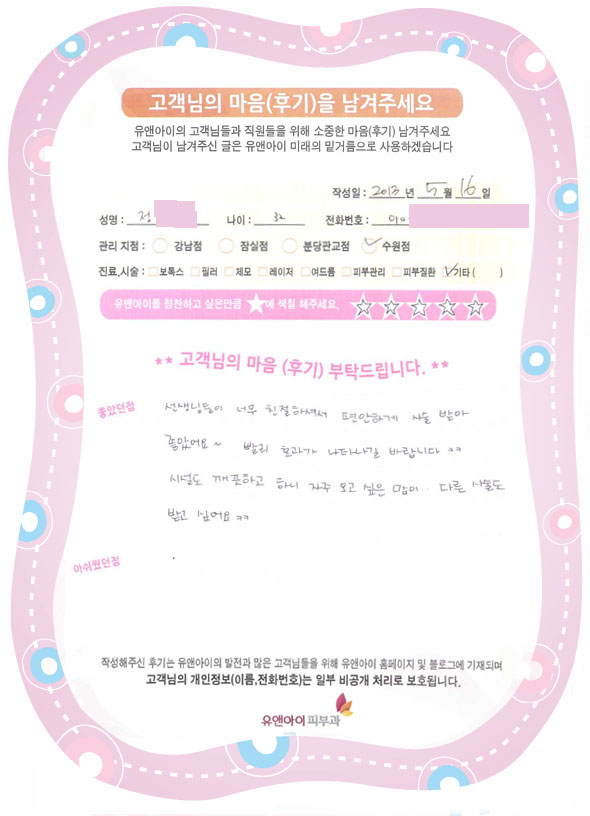 고객님의 마음(후기)을 남겨주세요
유앤아이의 고객님들과 직원들을 위해 소중한 마음(후기) 남겨주세요
고객님이 남겨주신 글은 유앤아이 미래의 밑거름으로 사용하겠습니다
작성일 : 2013 년 5 월 16 일
성명 : 정 나이 : 32 전화번호 :
관리 지점 : 강남점 잠실점 분당판교점 수원점
진료,시술 : 보톡스 필러 제모 레이저 여드름 피부관리 피부질환 기타 ( )
유앤아이를 칭찬하고 싶은만큼 ★에 색칠 해주세요.
** 고객님의 마음 (후기) 부탁드립니다. **
좋았던점
선생님들이 너무 친절하셔서 편안하게 시술 받아
좋았어요~ 빨리 효과가 나타나길 바랍니다 ㅋㅋ
시설도 깨끗하고 하니 자주 오고 싶은 맘이.. 다른 시술도
받고 싶어요 ㅋㅋ
아쉬웠던점
.
작성해주신 후기는 유앤아이의 발전과 많은 고객님들을 위해 유앤아이 홈페이지 및 블로그에 기재되며
고객님의 개인정보(이름,전화번호)는 일부 비공개 처리로 보호됩니다.
유앤아이피부과